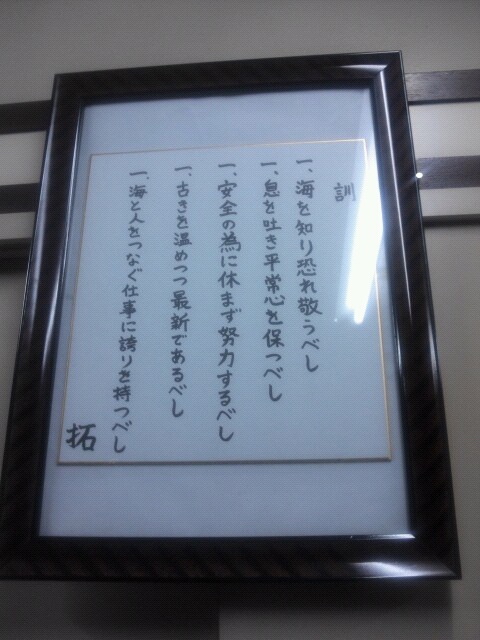 訓
一、海を知り恐れ敬うべし
一、息を吐き平常心を保つべし
一、安全の為に休まず努力するべし
一、古きを温めつつ最新であるべし
一、海と人をつなぐ仕事に誇りを持つべし
拓